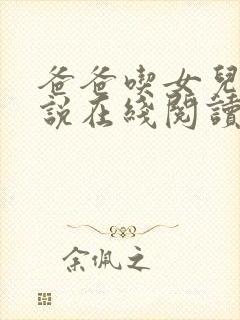 爸爸喫女兒
說在綫閱讀
余佩之